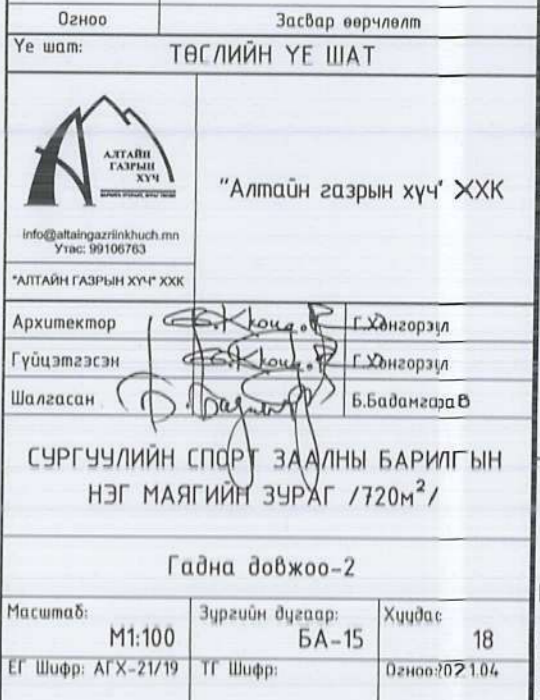 Огноо Засвар өөрчлөлт
Үе шат: ТӨСЛИЙН ҮЕ ШАТ
АЛТАЙН
ГАЗРЫН
ХҮЧ
info@altaingazriinkhuch.mn
Утас: 99106763
"АЛТАЙН ГАЗРЫН ХҮЧ" ХХК
"Алтайн газрын хүч" ХХК
Архитектор Г.Хонгорзул
Гүйцэтгэсэн Г.Хонгорзул
Шалгасан Б.Бадамгарав
СУРГУУЛИЙН СПОРТ ЗААЛНЫ БАРИЛГЫН
НЭГ МАЯГИЙН ЗУРАГ /720м²/
Гадна довжоо-2
Масштаб: Зургийн дугаар: Хуудас
М1:100 БА-15 18
ЕГ Шифр: АГХ-21/19 ТГ Шифр: Огноо:2021.04